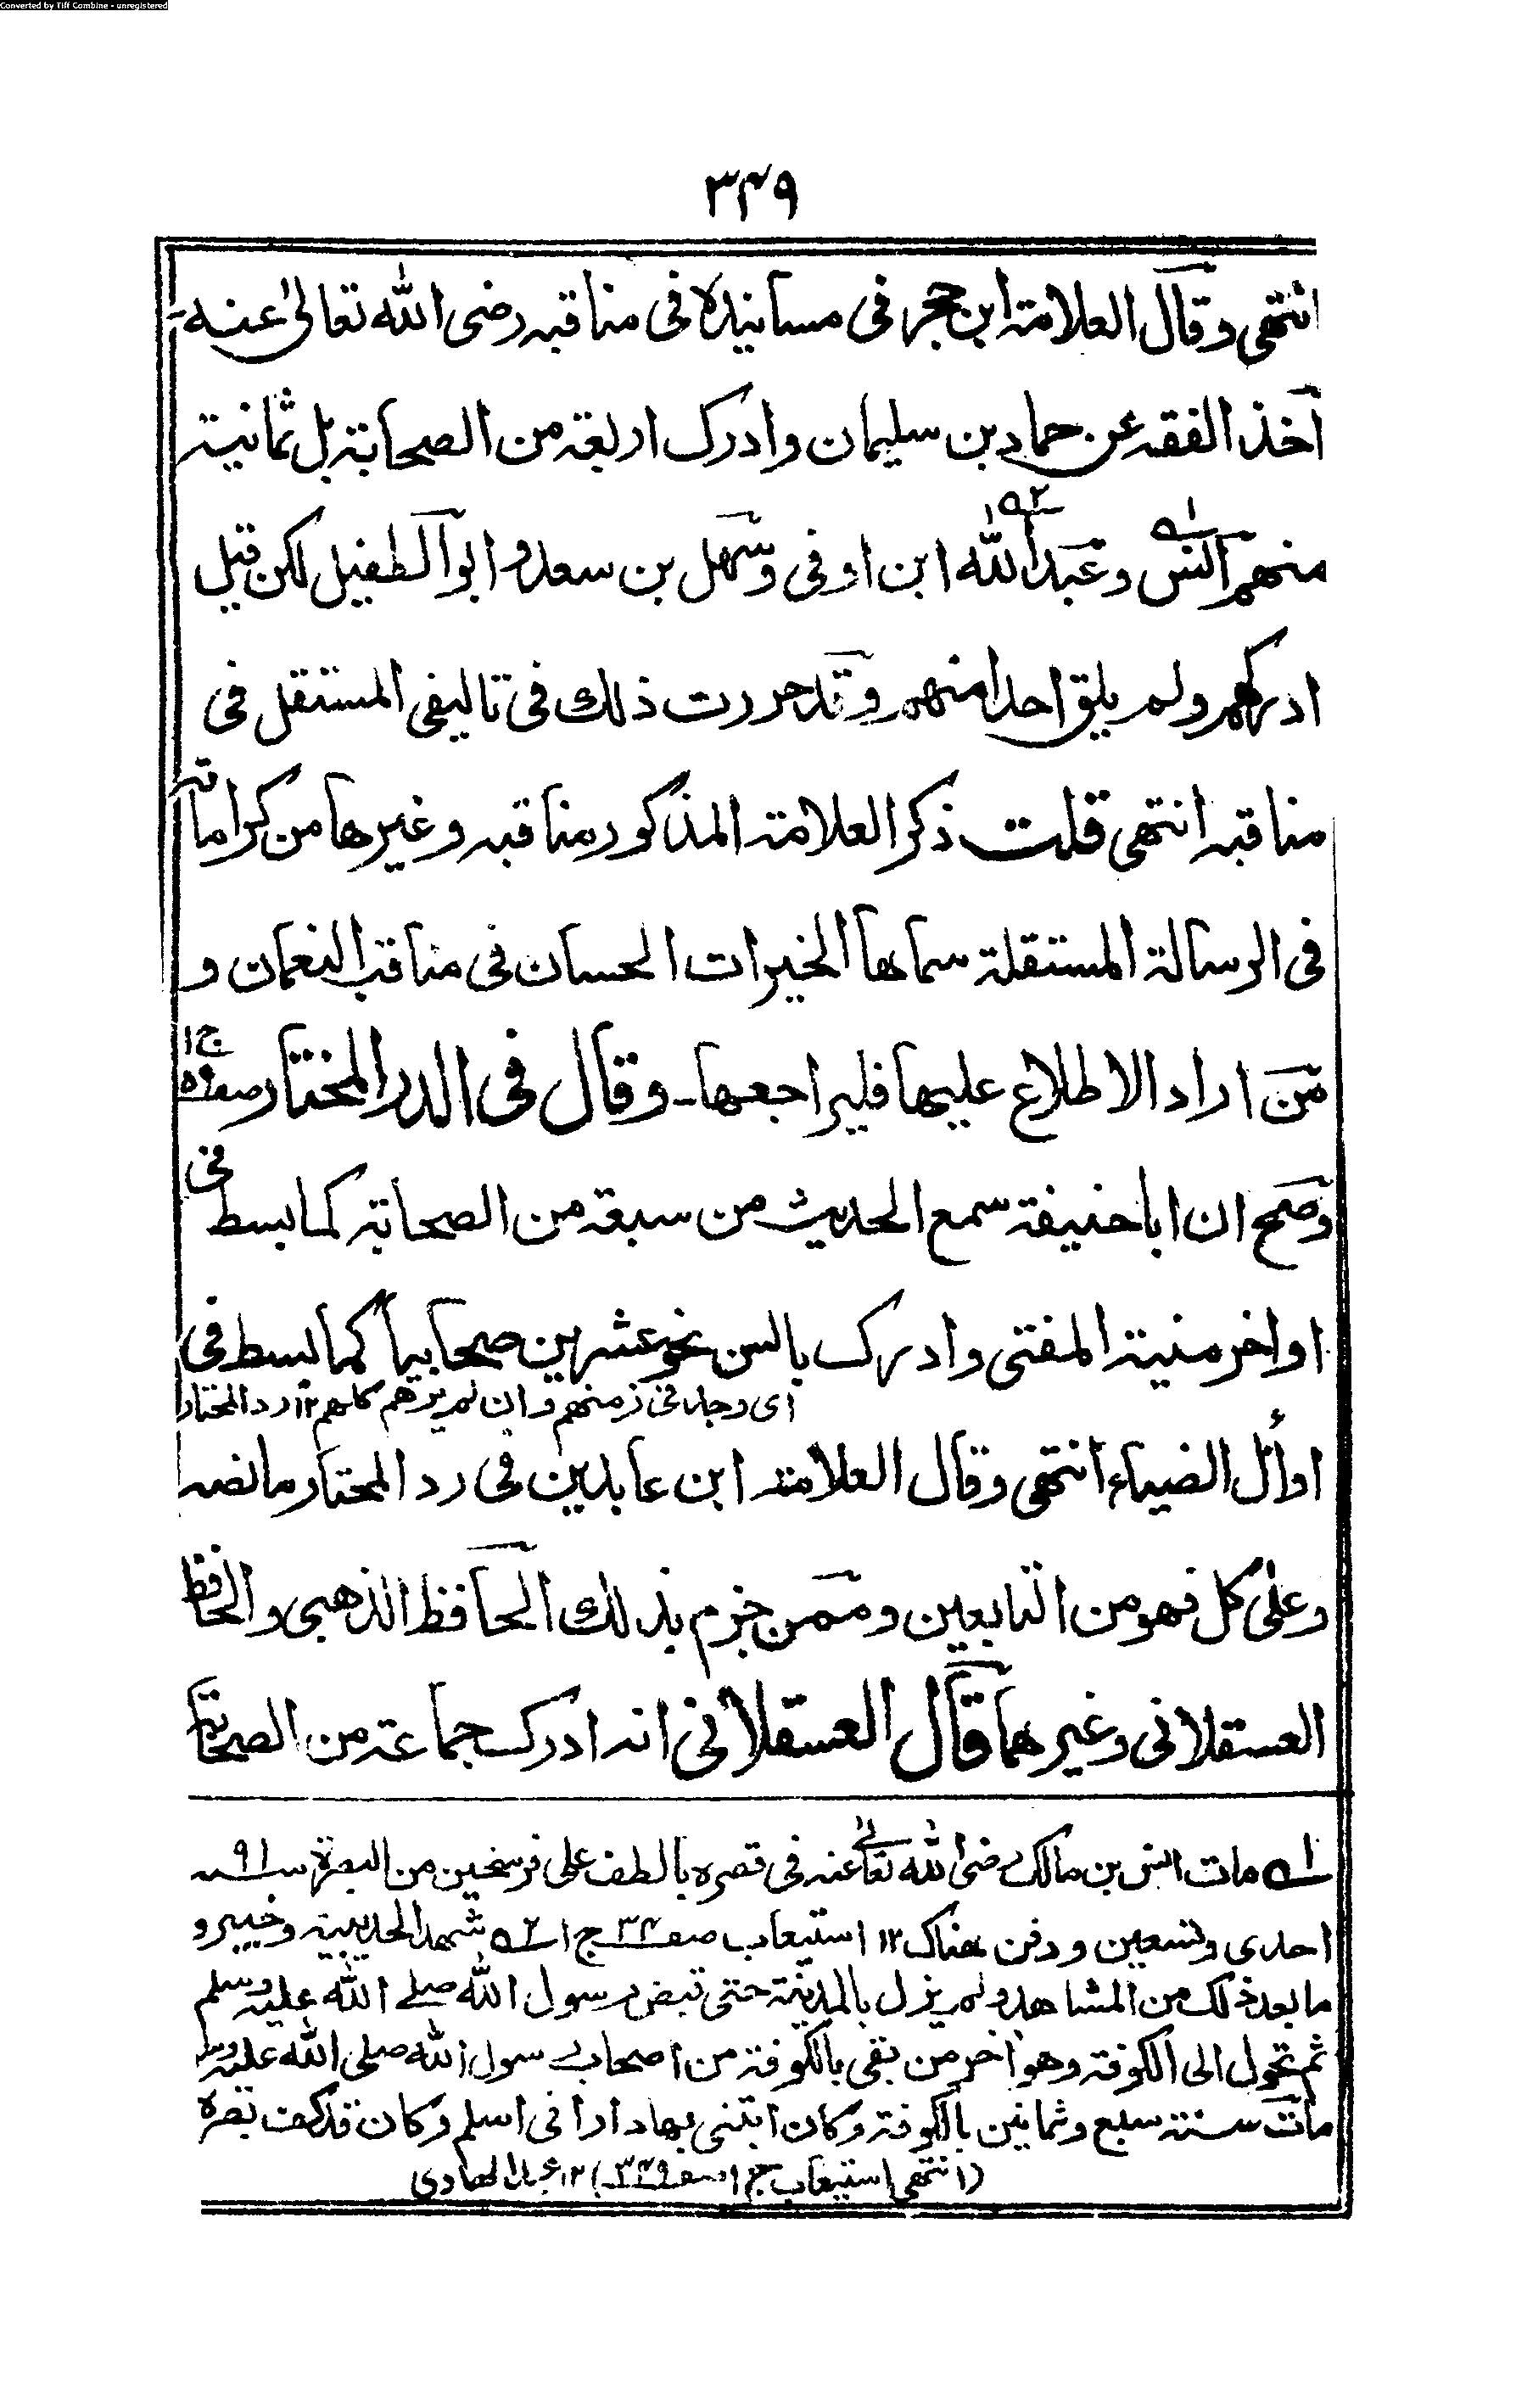 Converted by Tiff Combine - unregistered
۳۴۹
انتهى وقال العلامة ابن حجر فى مسانيده فى مناقبه رضى الله تعالىٰ عنه۔
اخذ الفقه عن حماد بن سليمان وادرك اربعة من الصحابة بل ثمانية
منهم انس ؎۱ وعبد الله ؎۲ ابن اوفى وسهل بن سعد وابو الطفيل لكن قيل
ادركهم ولم يلق احدا منهم وقد حررت ذلك فى تاليفى المستقل فى
مناقبه انتهى قلت ذكر العلامة المذكور مناقبه وغيرها من كراماته
فى الرسالة المستقلة سماها الخيرات الحسان فى مناقب النعمان و
من اراد الاطلاع عليها فليراجعها۔ وقال فى الدر المختار صفه ۵۹ ج۱
وصح ان ابا حنيفة سمع الحديث من سبعة من الصحابة كما بسط فى
اواخر منية المفتى وادرك بالسن نحو عشرين صحابيا كما بسط فى
اى وجد فى زمنهم وان لم يرهم كلهم ۱۲ رد المحتار
اوائل الضياء انتهى وقال العلامة ابن عابدين فى رد المحتار ما نصه
وعلىٰ كل فهو من التابعين وممن جزم بذلك الحافظ الذهبى والحافظ
العسقلانى وغيرهما قال العسقلانى انه ادرك جماعة من الصحابة
؎۱ مات انس بن مالك رضى الله تعالىٰ عنه فى قصره بالطف على فرسخين من البصرة سنه ۹۱
احدى وتسعين ودفن هناك ۱۲ استيعاب صفه ۳۴ ج۱ ؎۲ شهد الحديبية وخيبر و
ما بعد ذلك من المشاهد ولم يزل بالمدينة حتى قبض رسول الله صلے الله عليه وسلم
ثم تحول الى الكوفة وهو اخر من بقى بالكوفة من اصحاب رسول الله صلى الله عليه وسلم
مات سنة سبع وثمانين بالكوفة وكان ابتنى بها دارا فى اسلم وكان قد كف بصره
(انتهى استيعاب ج۱ صفه ۳۴۹) ۱۲ عبد الهادى